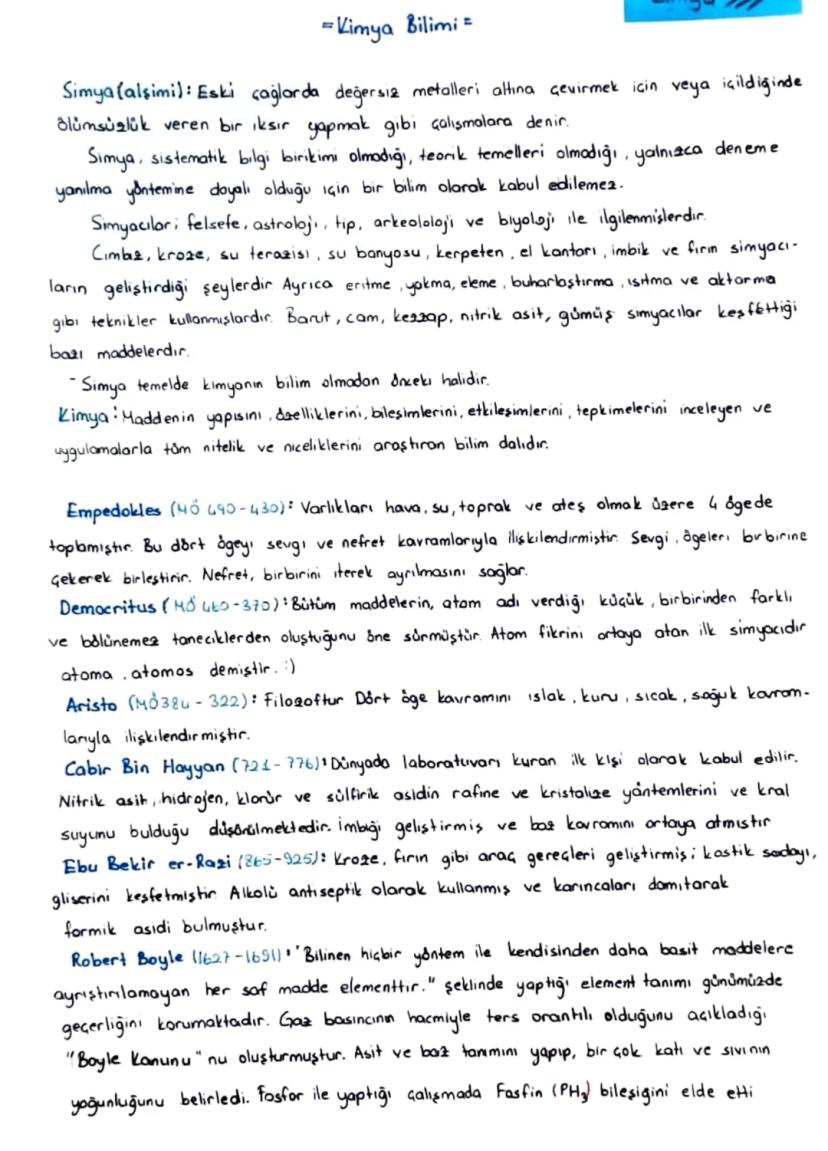 =Kimya Bilimi=
Simya(alşimi): Eski çağlarda değersiz metalleri altına çevirmek için veya içildiğinde
ölümsüzlük veren bir iksir yapmak gibi çalışmalara denir.
Simya, sistematik bilgi birikimi olmadığı, teorik temelleri olmadığı, yalnızca deneme
yanılma yöntemine dayalı olduğu için bir bilim olarak kabul edilemez.
Simyacılar; felsefe, astroloji, tıp, arkeololoji ve biyoloji ile ilgilenmişlerdir.
Cımbız, kroze, su terazisi, su banyosu, kerpeten, el kantarı, imbik ve fırın simyacı-
ların geliştirdiği şeylerdir Ayrıca eritme, yakma, eleme, buharlaştırma, ısıtma ve aktarma
gibi teknikler kullanmışlardır. Barut, cam, kezzap, nitrik asit, gümüş simyacılar keşfettiği
bazı maddelerdir.
- Simya temelde kimyanın bilim olmadan önceki halidir.
Kimya: Maddenin yapısını, özelliklerini, bileşimlerini, etkileşimlerini, tepkimelerini inceleyen ve
uygulamalarla tüm nitelik ve niceliklerini araştıran bilim dalıdır.
Empedokles (MÖ 490-430): Varlıkları hava, su, toprak ve ateş olmak üzere 4 ögede
toplamıştır. Bu dört ögeyi sevgi ve nefret kavramlarıyla ilişkilendirmiştir. Sevgi, ögeleri birbirine
çekerek birleştirir. Nefret, birbirini iterek ayrılmasını sağlar.
Democritus (MÖ 460-370): Bütüm maddelerin, atom adı verdiği küçük, birbirinden farklı
ve bölünemez taneciklerden oluştuğunu öne sürmüştür. Atom fikrini ortaya atan ilk simyacıdır
atoma, atomos demiştir. :)
Aristo (MÖ384 - 322): Filozoftur Dört öge kavramını ıslak, kuru, sıcak, soğuk kavram-
larıyla ilişkilendirmiştir.
Cabir Bin Hayyan (721-776): Dünyada laboratuvarı kuran ilk kişi olarak kabul edilir.
Nitrik asit, hidrojen, klorür ve sülfirik asidin rafine ve kristalize yöntemlerini ve kral
suyunu bulduğu düşünülmektedir. İmbiği geliştirmiş ve baz kavramını ortaya atmıştır
Ebu Bekir er-Razi (865-925): Kroze, fırın gibi araç gereçleri geliştirmiş; kostik sodayı,
gliserini keşfetmiştir. Alkolü antiseptik olarak kullanmış ve karıncaları damıtarak
formik asidi bulmuştur.
Robert Boyle (1627-1691): "Bilinen hiçbir yöntem ile kendisinden daha basit maddelere
ayrıştırılamayan her saf madde elementtir." şeklinde yaptığı element tanımı günümüzde
geçerliğini korumaktadır. Gaz basıncının hacmiyle ters orantılı olduğunu açıkladığı
"Boyle Kanunu"nu oluşturmuştur. Asit ve baz tanımını yapıp, bir çok katı ve sıvının
yoğunluğunu belirledi. Fosfor ile yaptığı çalışmada Fosfin (PH3) bileşiğini elde etti